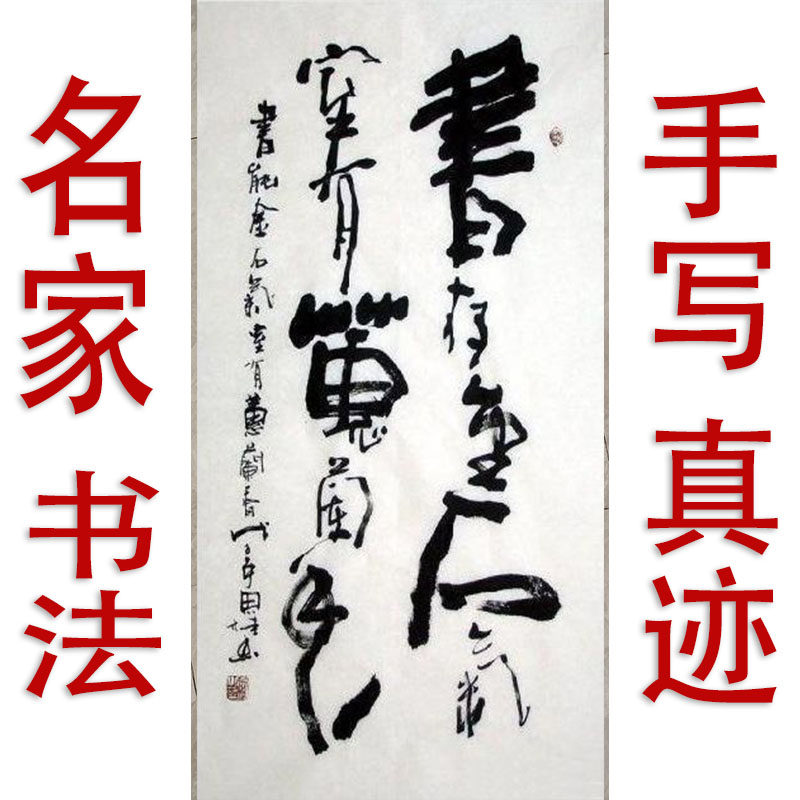 名家 书法
手写 真迹
書存金石氣
室有蕙蘭
書能金石氣室有蕙蘭